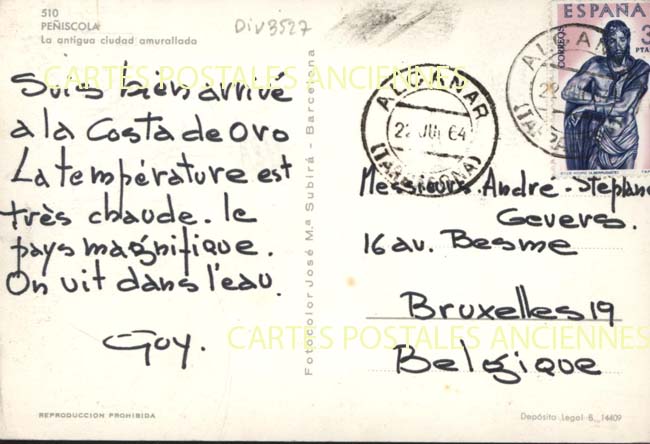 510
PEÑISCOLA
La antigua ciudad amurallada
Div3527
Suis bien arrivé
a la Costa de Oro
La température est
très chaude. le
pays magnifique.
On vit dans l'eau.
Guy.
REPRODUCCION PROHIBIDA
Fotocolor José M.ª Subirá - Barcelona
ALCANAR
22 JUL 64
(TARRAGONA)
ESPAÑA
CORREOS
3
PTAS
ALCANAR
22
Messieurs Andre - Stephane
Gevers.
16 av. Besme
Bruxelles 19
Belgique
Depósito Legal B. 14409
CARTES POSTALES ANCIENNES
CARTES POSTALES ANCIENNES